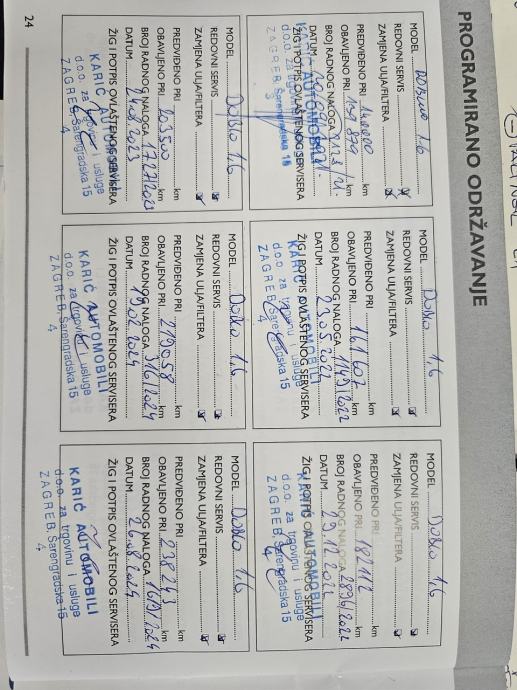 PROGRAMIRANO ODRŽAVANJE
MODEL Doblo 1.6
REDOVNI SERVIS
ZAMJENA ULJA/FILTERA
PREDVIĐENO PRI 140000 km
OBAVLJENO PRI 139879 km
BROJ RADNOG NALOGA
DATUM
ŽIG I POTPIS OVLAŠTENOG SERVISERA
KARIĆ AUTOMOBILI
d.o.o. za trgovinu i usluge
ZAGREB, Šarengradska 15
3
MODEL Doblo 1.6
REDOVNI SERVIS
ZAMJENA ULJA/FILTERA
PREDVIĐENO PRI km
OBAVLJENO PRI 161607 km
BROJ RADNOG NALOGA 1149/2022
DATUM 23.05.2022
ŽIG I POTPIS OVLAŠTENOG SERVISERA
KARIĆ AUTOMOBILI
d.o.o. za trgovinu i usluge
ZAGREB, Šarengradska 15
4
MODEL Doblo 1.6
REDOVNI SERVIS
ZAMJENA ULJA/FILTERA
PREDVIĐENO PRI km
OBAVLJENO PRI 182112 km
BROJ RADNOG NALOGA 2896/2022
DATUM 29.12.2022
ŽIG I POTPIS OVLAŠTENOG SERVISERA
KARIĆ AUTOMOBILI
d.o.o. za trgovinu i usluge
ZAGREB, Šarengradska 15
4
MODEL Doblo 1.6
REDOVNI SERVIS
ZAMJENA ULJA/FILTERA
PREDVIĐENO PRI km
OBAVLJENO PRI 203500 km
BROJ RADNOG NALOGA 1727/2023
DATUM 24.08.2023
ŽIG I POTPIS OVLAŠTENOG SERVISERA
KARIĆ AUTOMOBILI
d.o.o. za trgovinu i usluge
ZAGREB, Šarengradska 15
4
MODEL Doblo 1.6
REDOVNI SERVIS
ZAMJENA ULJA/FILTERA
PREDVIĐENO PRI km
OBAVLJENO PRI 219058 km
BROJ RADNOG NALOGA 316/2024
DATUM 19.02.2024
ŽIG I POTPIS OVLAŠTENOG SERVISERA
KARIĆ AUTOMOBILI
d.o.o. za trgovinu i usluge
ZAGREB, Šarengradska 15
4
MODEL Doblo 1.6
REDOVNI SERVIS
ZAMJENA ULJA/FILTERA
PREDVIĐENO PRI km
OBAVLJENO PRI 238243 km
BROJ RADNOG NALOGA 1679/2024
DATUM 26.08.2024
ŽIG I POTPIS OVLAŠTENOG SERVISERA
KARIĆ AUTOMOBILI
d.o.o. za trgovinu i usluge
ZAGREB, Šarengradska 15
4
24